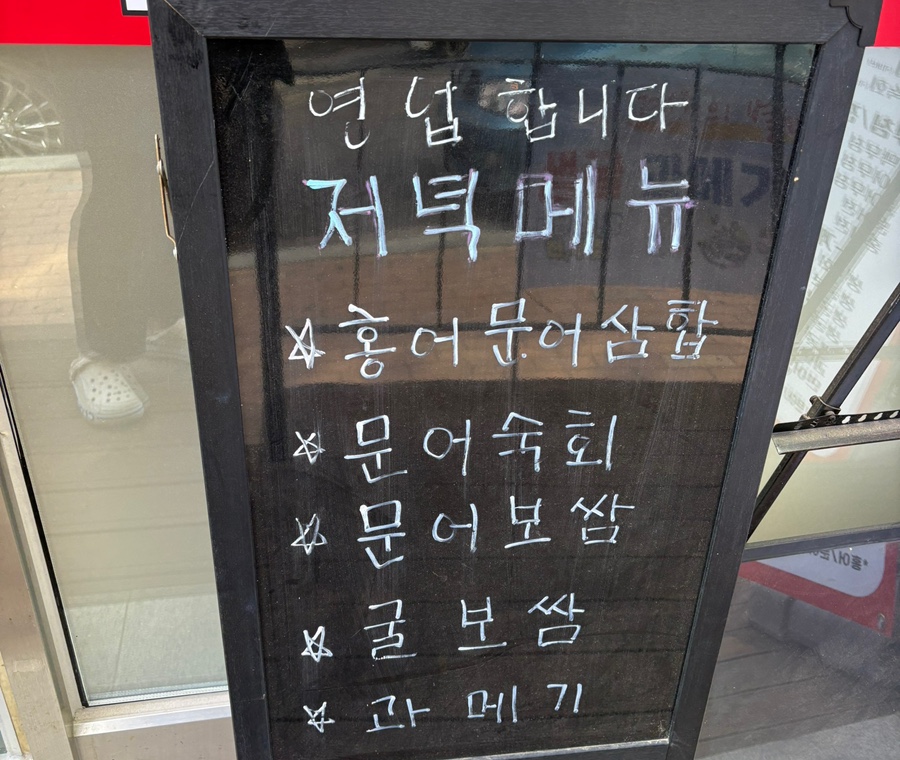 영업합니다
저녁메뉴
☆ 홍어문어삼합
☆ 문어숙회
☆ 문어보쌈
☆ 굴보쌈
☆ 과메기